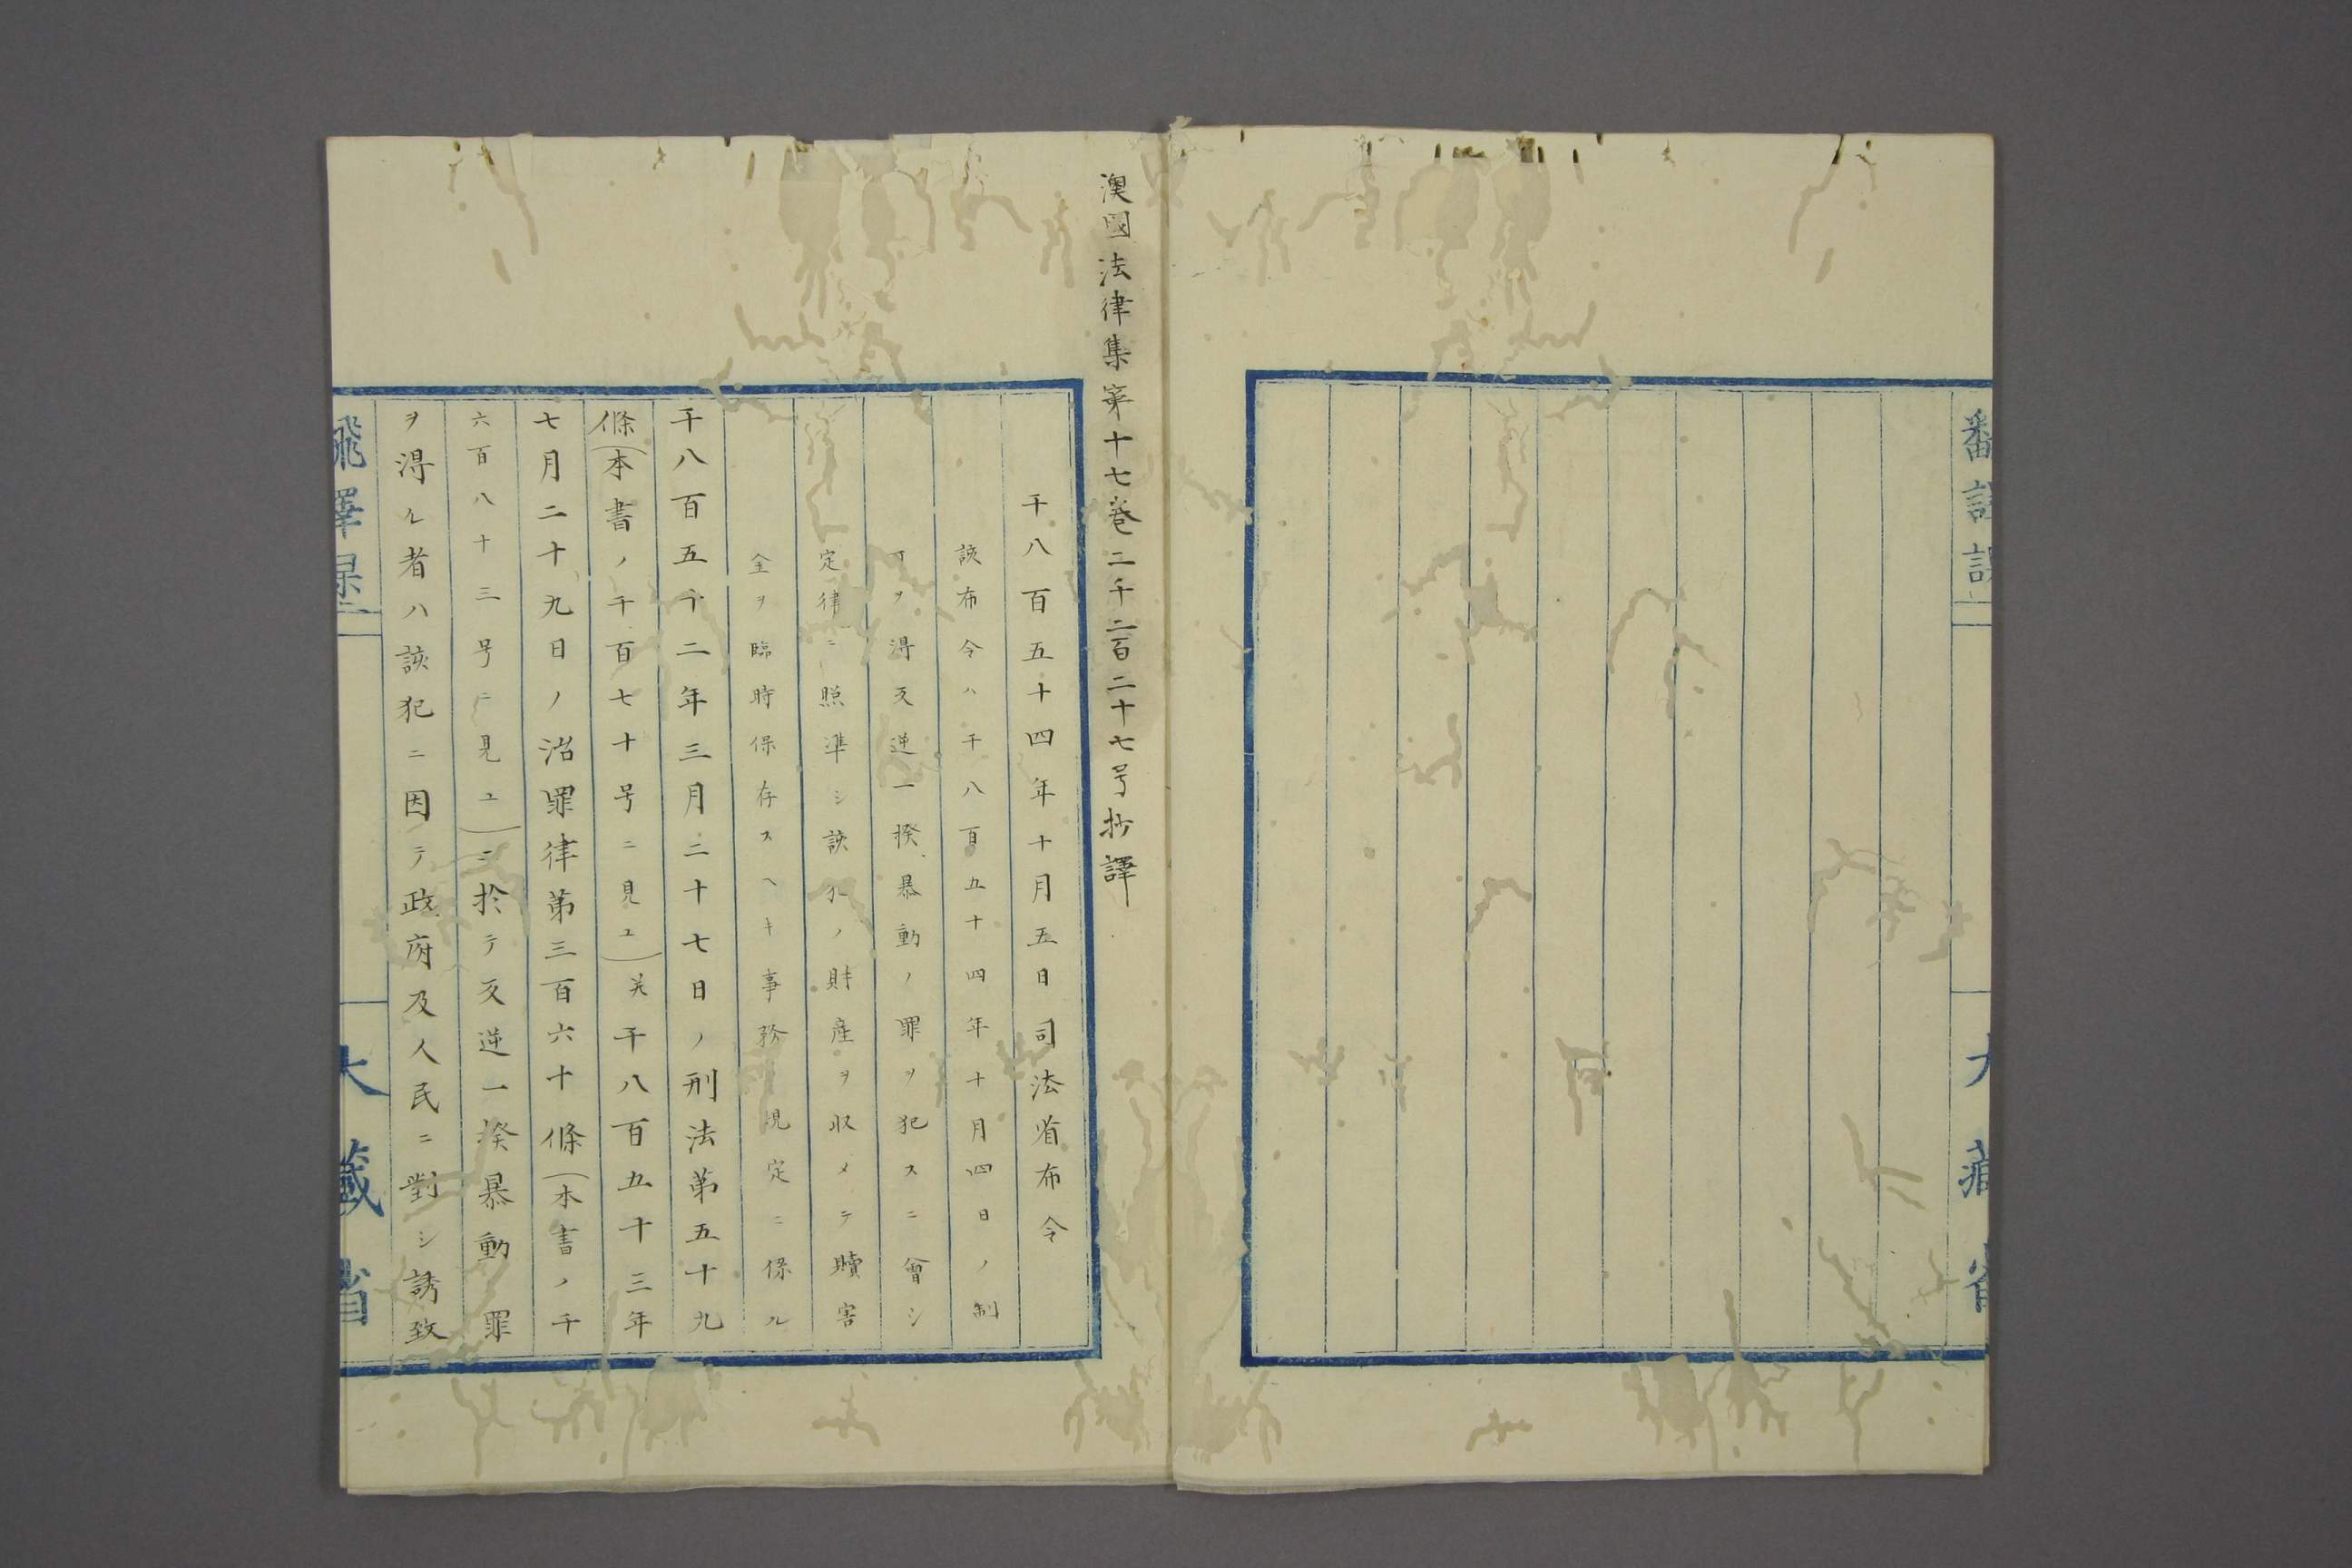 番訳課
大藏省
澳國法律集第十七巻二千二百二十七号抄譯
千八百五十四年十月五日司法省布令
該布令ハ千八百五十四年十月四日ノ制
可ヲ得反逆一揆暴動ノ罪ヲ犯スニ會シ
定律ニ照準シ該犯ノ財産ヲ収メテ贖害
金ヲ臨時保存スヘキ事務規定ニ係ル
千八百五十二年三月二十七日ノ刑法第五十九
條(本書ノ千百七十号ニ見ユ)并千八百五十三年
七月二十九日ノ治罪律第三百六十條(本書ノ千
六百八十三号ニ見ユ)ニ於テ反逆一揆暴動罪
ヲ得ル者ハ該犯ニ因テ政府及人民ニ對シ誘致
飛譯
大藏省